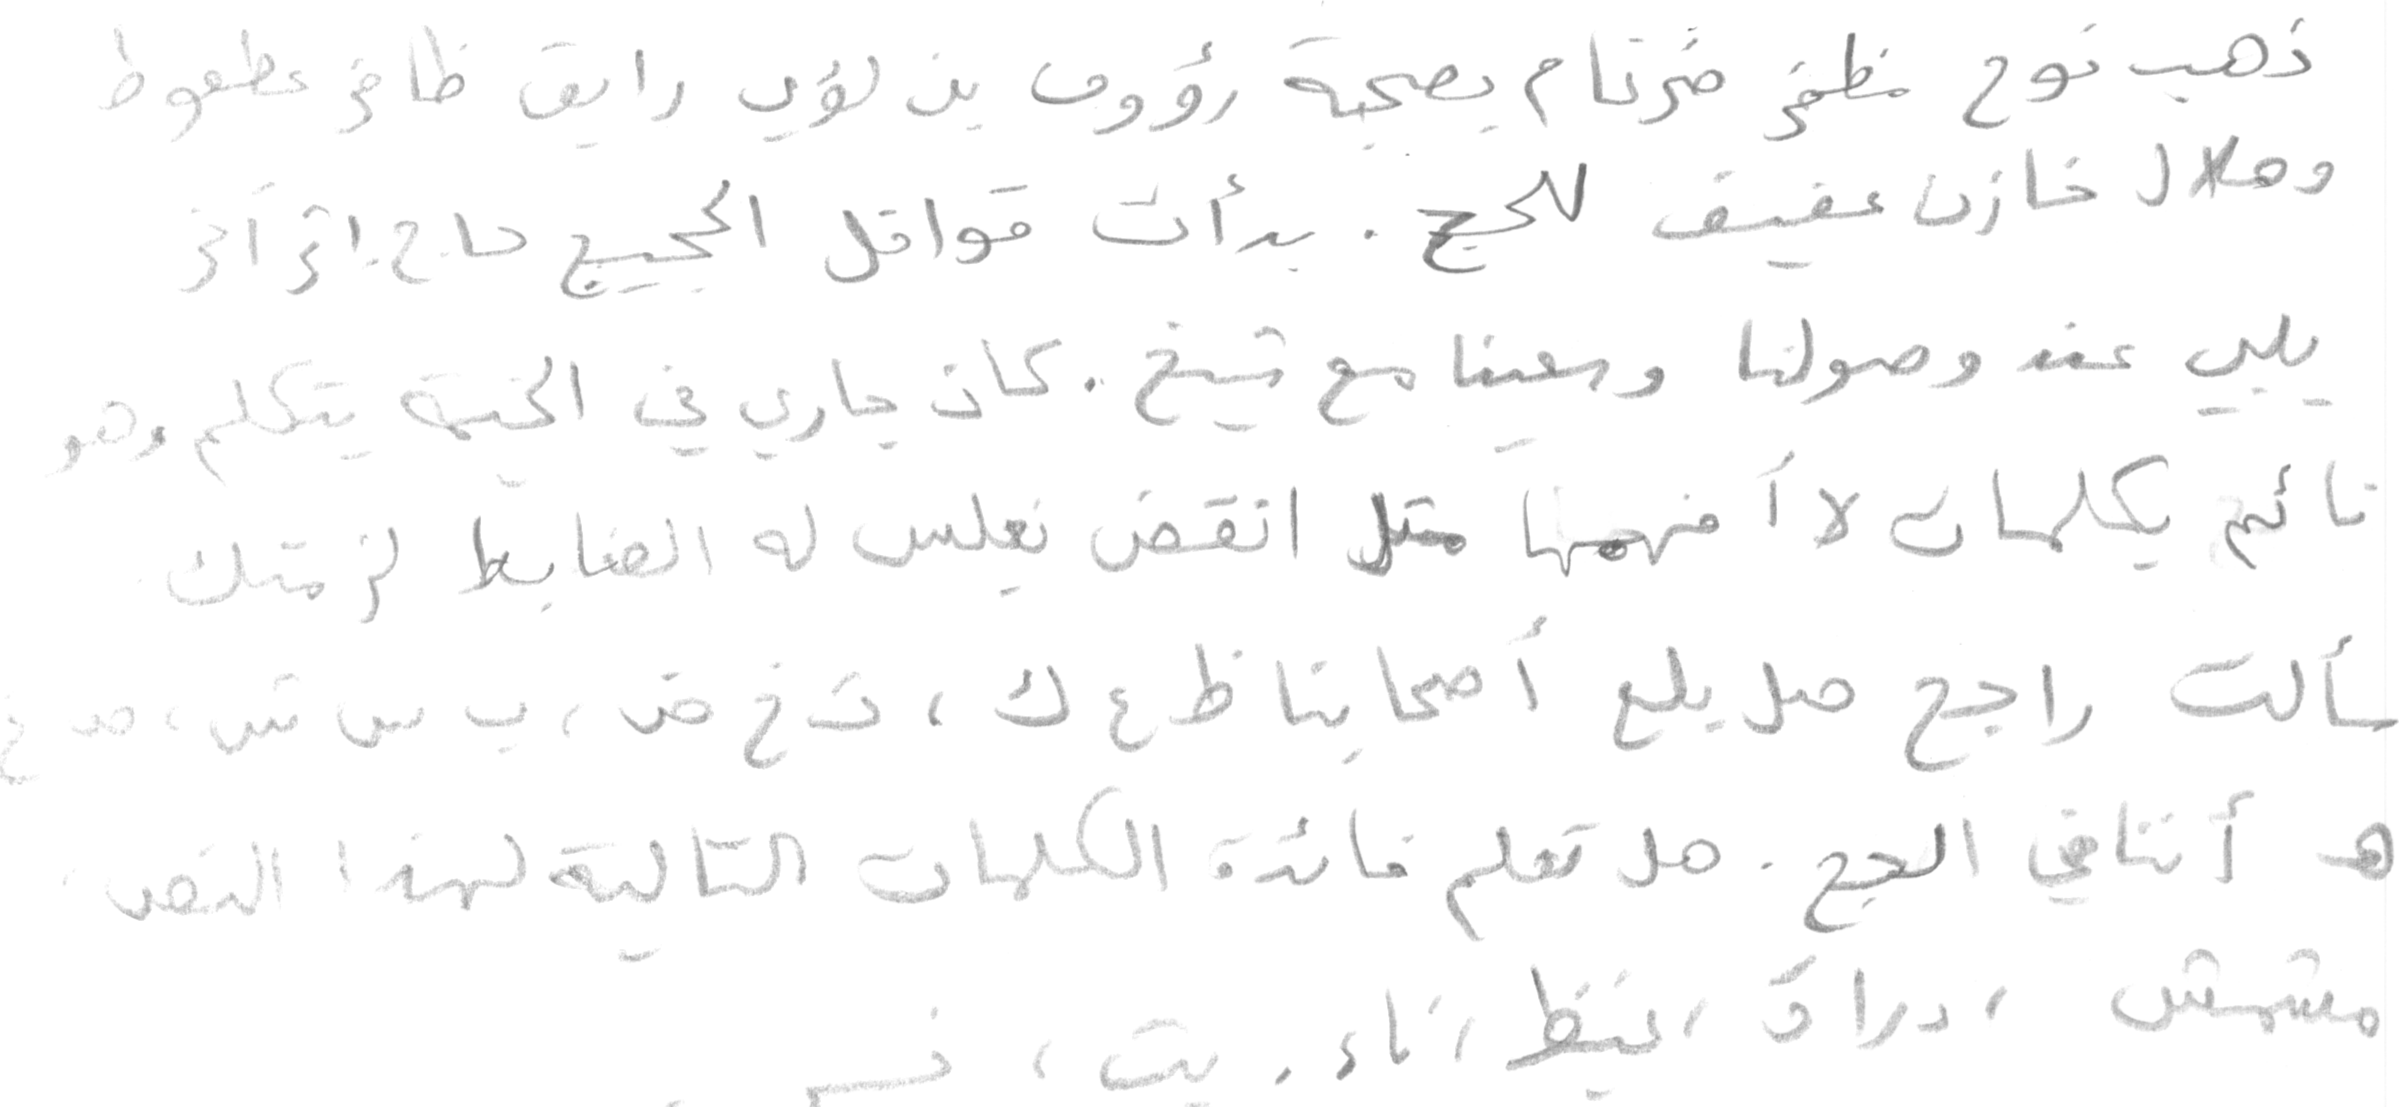 ذهب نوح مظفر ضرغام بصحبة رؤوف بن لؤي رايق ظافر عطعوط
وهلال خازن عفيف للحج . بدأت قوافل الحجيج حاج إثر آخر
يلبي عند وصولنا وسعينا مع شيخ . كان جاري في الخيمة يتكلم وهو
نائم بكلمات لا أفهمها مثل انقض نعلس له الضابط لزمتك
سألت راجح هل بلغ أصحابنا ظ ع ك ، ث خ ض ، ب س ش ، ص غ
هـ أننا في الحج . هل تعلم فائدة الكلمات التالية لهذا النص
مشمش ، دراق ، غيظ ، ناء ، بث ،